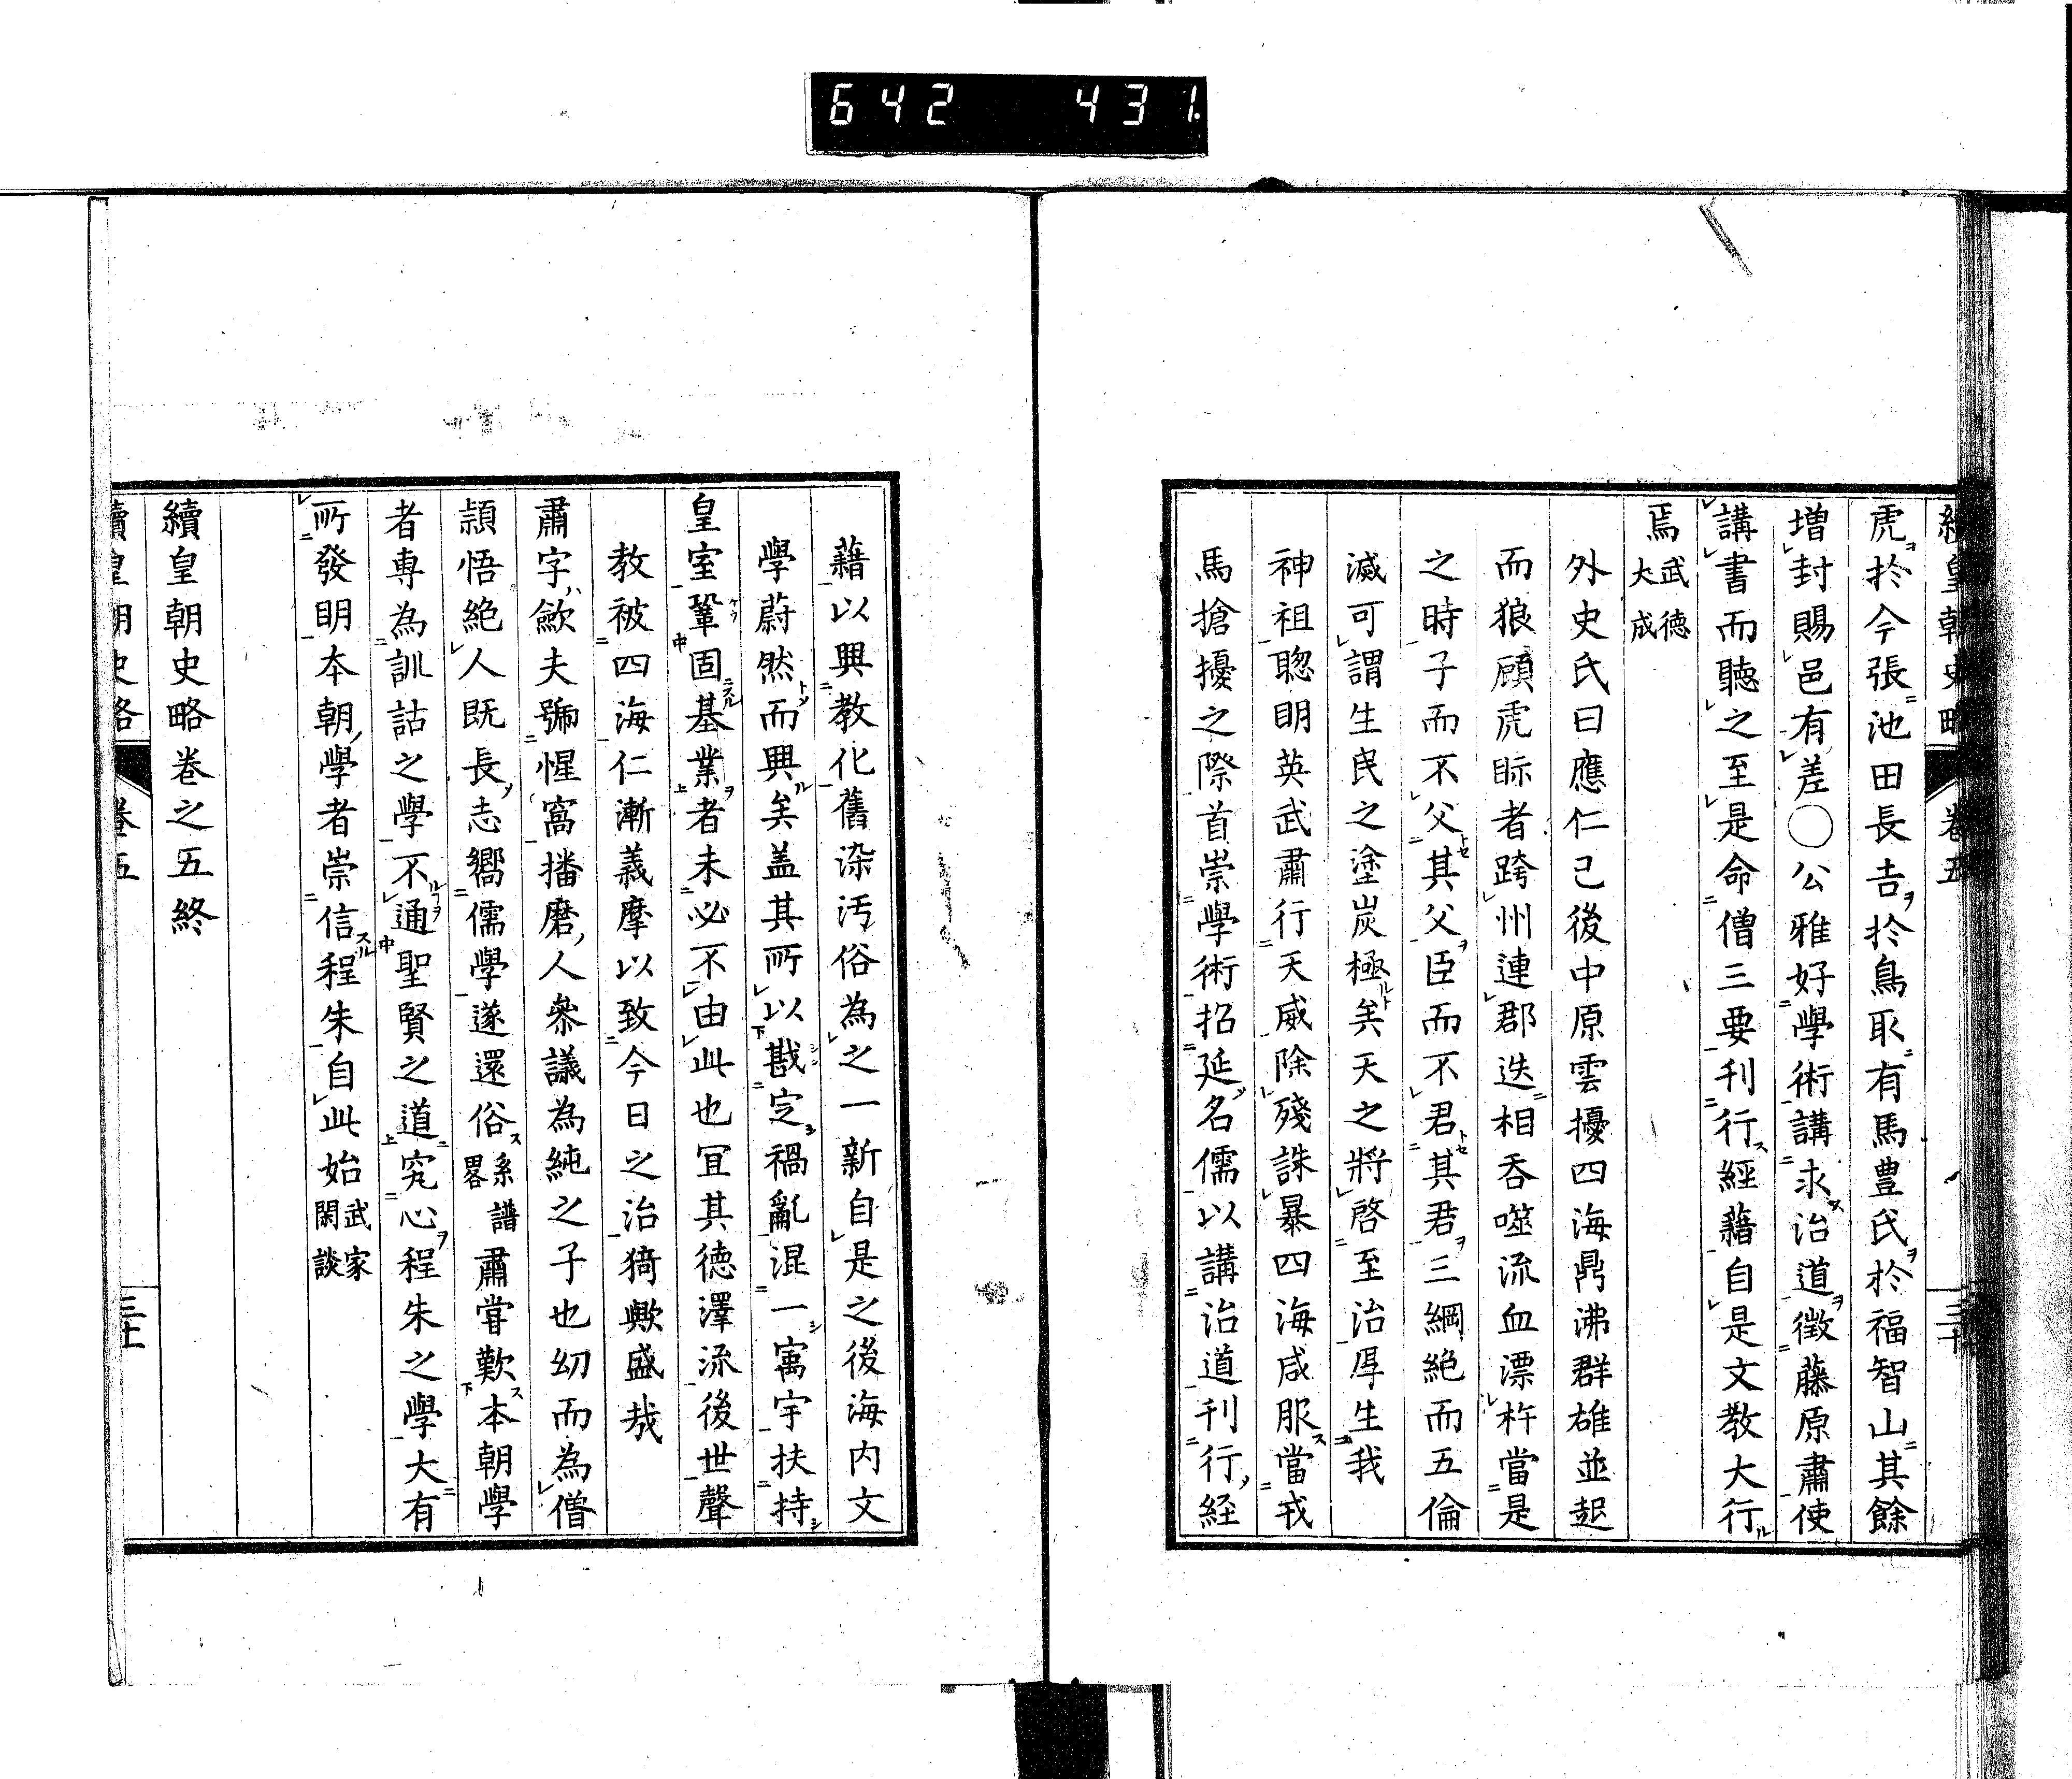 642 431
續皇朝史略 卷五 三十
虎於今張池田長吉於鳥取有馬豊氏於福智山其餘
増封賜邑有差○公雅好學術講求治道徴藤原肅使
講書而聽之至是命僧三要刊行經藉自是文教大行
焉武德大成
外史氏曰應仁已後中原雲擾四海鼎沸群雄並起
而狼顧虎眎者跨州連郡迭相呑噬流血漂杵當是
之時子而不父其父臣而不君其君三綱絶而五倫
滅可謂生民之塗炭極矣天之將啓至治厚生我
神祖聰明英武肅行天威除殘誅暴四海咸服當戎
馬搶擾之際首崇學術招延名儒以講治道刊行經
藉以興教化舊染汚俗為之一新自是之後海内文
學蔚然而興矣盖其所以戡定禍亂混一寓宇扶持
皇室鞏固基業者未必不由此也宜其德澤流後世聲
教被四海仁漸義摩以致今日之治猗歟盛哉
肅字歛夫號惺窩播磨人參議為純之子也幼而為僧
頴悟絶人既長志嚮儒學遂還俗系譜畧肅甞歎本朝學
者專為訓詁之學不通聖賢之道究心程朱之學大有
所發明本朝學者崇信程朱自此始武家閑談
續皇朝史略卷之五終
續皇朝史略 卷五